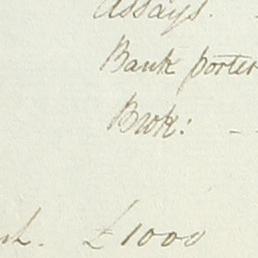 Assays.
Bank porter
Brok: -
£1000